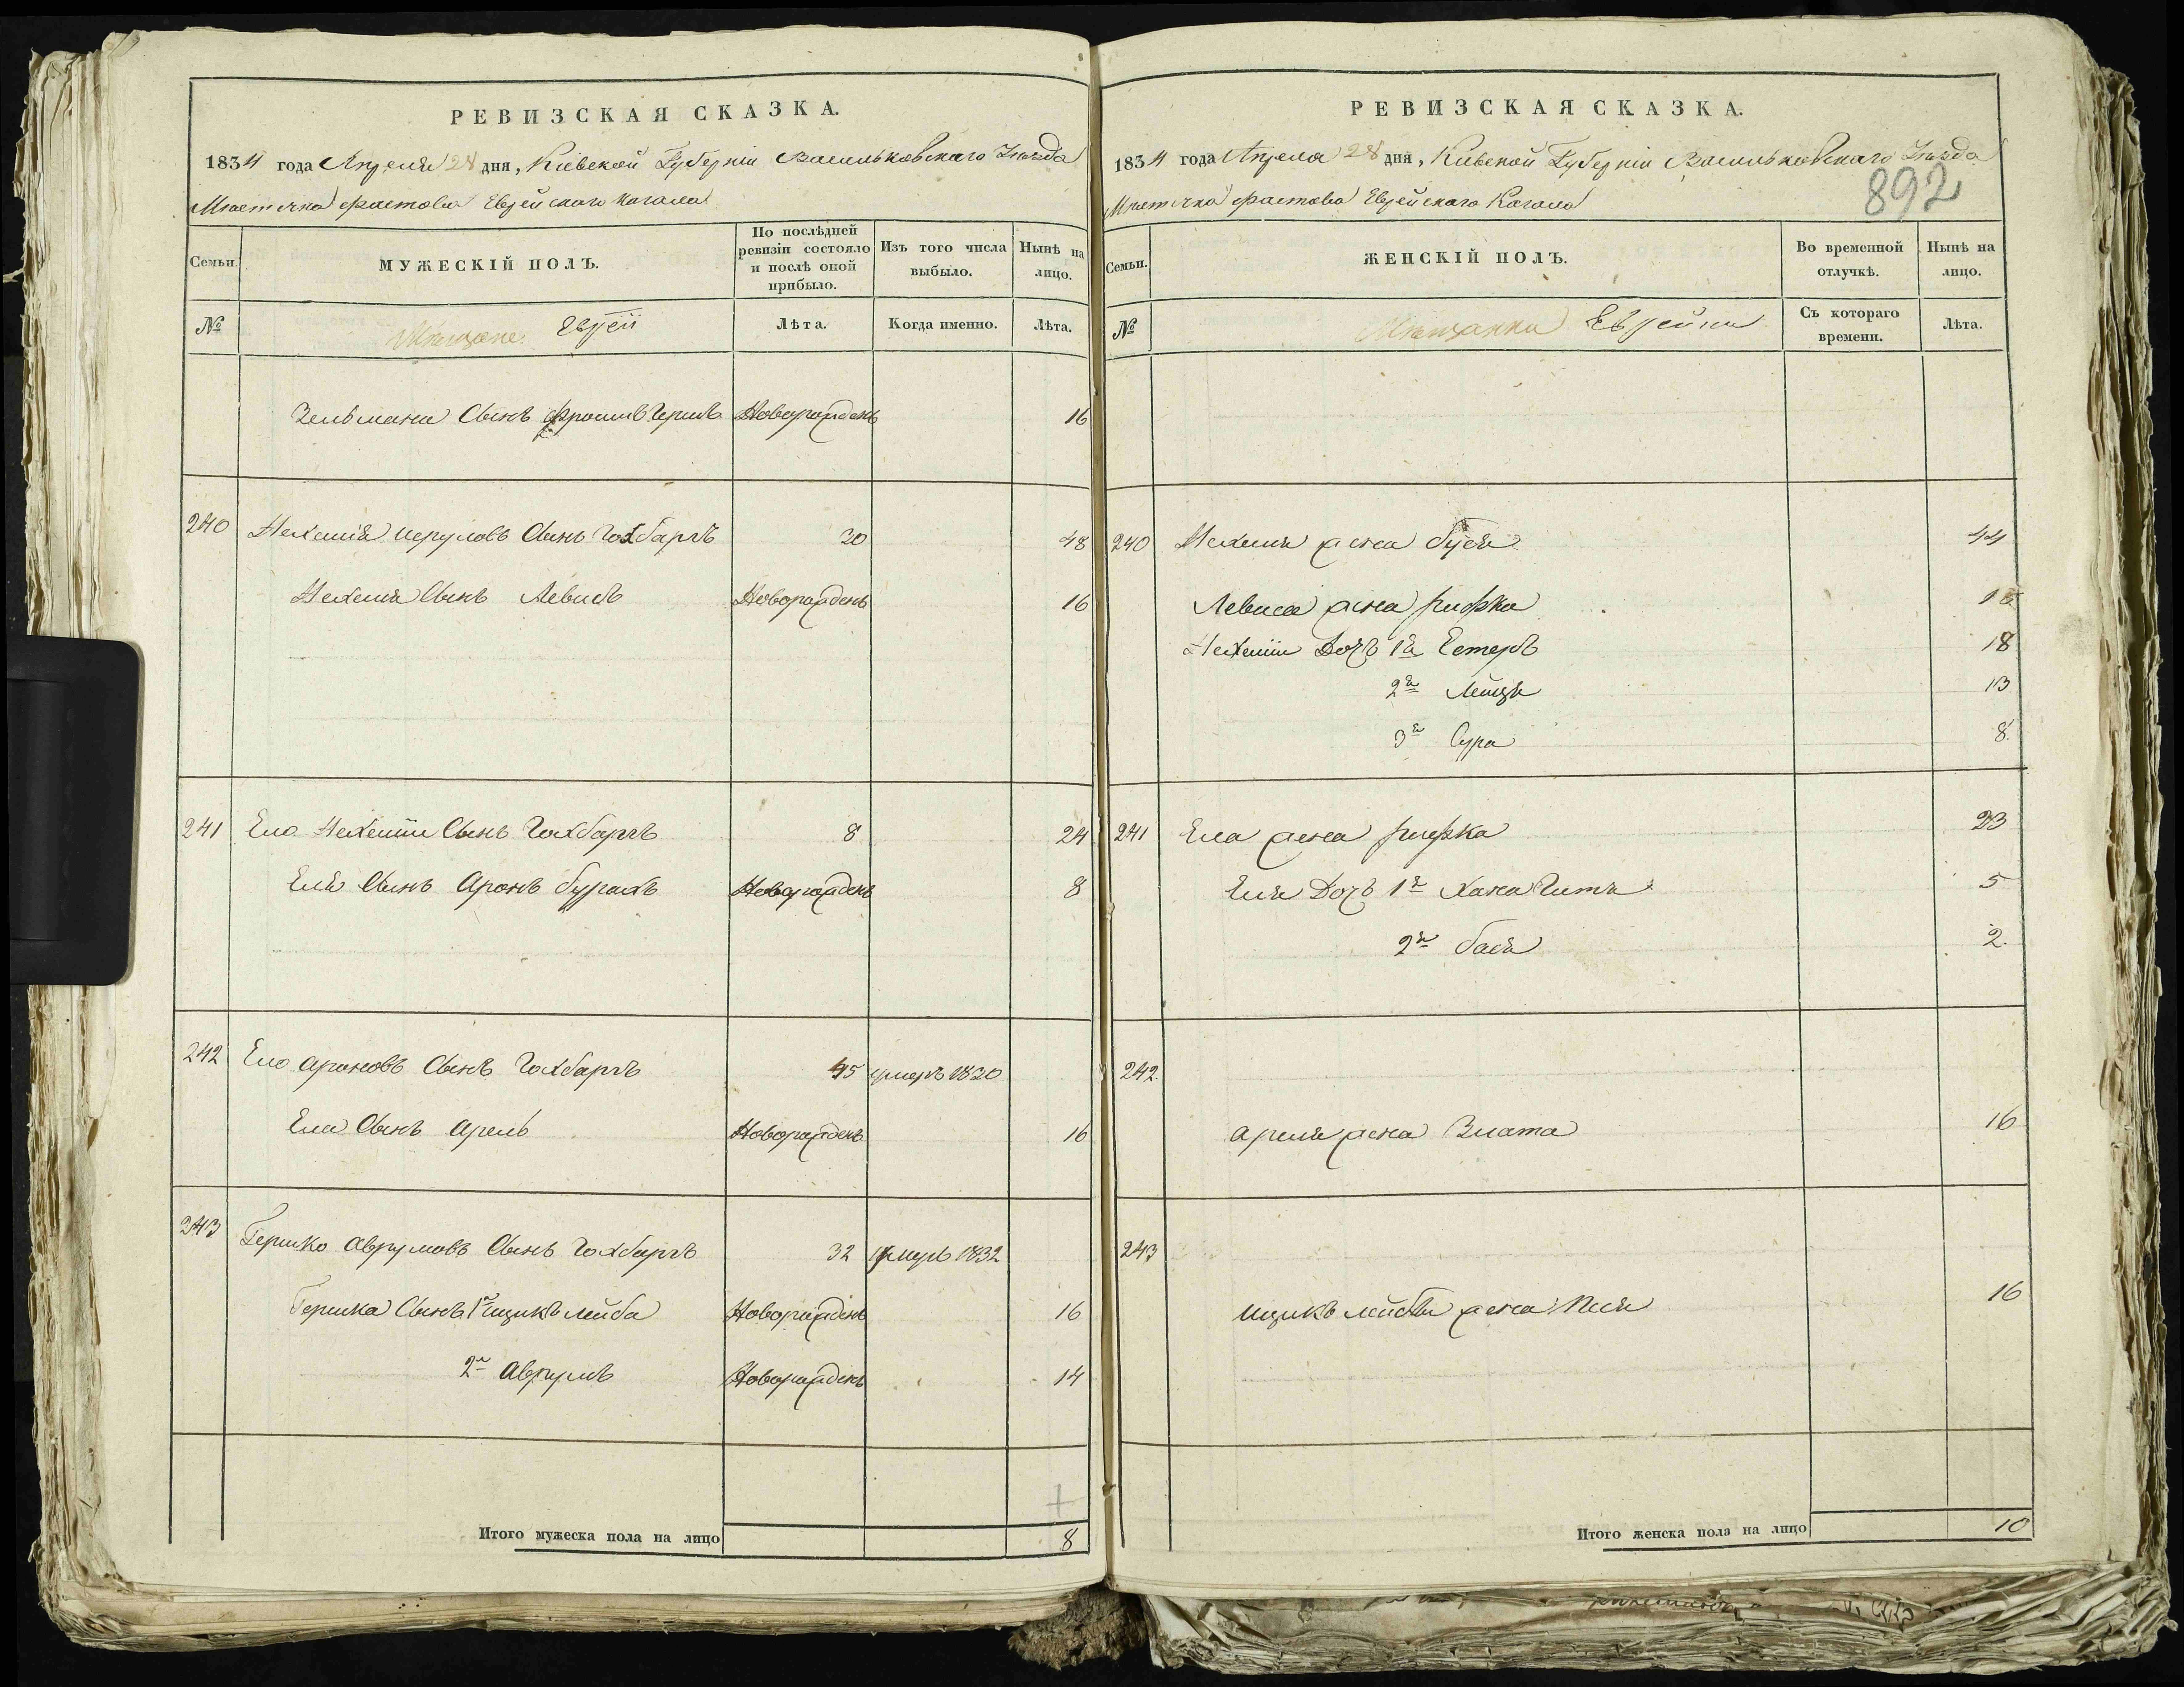 РЕВИЗСКАЯ СКАЗКА.
1834 года Апреля 28 дня, Кіевской Губерніи Васильковскаго Уезда
Местечка Фастова Еврейскаго Кагала
Семьи.
МУЖЕСКІЙ ПОЛЪ.
По послѣдней ревизіи состояло и послѣ оной прибыло.
Изъ того числа выбыло.
Нынѣ на лицо.
№
Мещане Евреи
Лѣта.
Когда именно.
Лѣта.
Зельмана Сынъ Фроимъ Гершъ Новорожденъ 16
240 Нехемія Сынъ Гохбаргъ 20 48
Нехемія Сынъ Левисъ Новорожденъ 16
241 Ело Нехеміи Сынъ Гохбаргъ 8 24
Еля Сынъ Аронъ Бурахъ Новорожденъ 8
242 Ело Ароновъ Сынъ Гохбаргъ 45 умеръ 1820
Ела Сынъ Арель Новорожденъ 16
243 Гершко Аврумовъ Сынъ Гохбаргъ 32 умеръ 1832
Гершка Сынъ 1й Ицикъ Лейба Новорожденъ 16
2й Аврумъ Новорожденъ 14
Итого мужеска пола на лицо 8
РЕВИЗСКАЯ СКАЗКА.
1834 года Апреля 28 дня, Кіевской Губерніи Васильковскаго Уезда
892
Местечка Фастова Еврейскаго Кагала
Семьи.
ЖЕНСКІЙ ПОЛЪ.
Во временной отлучкѣ.
Нынѣ на лицо.
№
Мещанки Еврейки
Съ котораго времени.
Лѣта.
240 Нехемія жена Буся 44
Левиса жена Рифка
Нехеміи Дочь 1я Естеръ 18
2я 13
3я Сура 8.
241 Ела жена Рифка 23
Еля Дочь 1я Хана Гитя 5
2я Бася 2.
242.
Ареля жена Злата 16
243
Ицикъ Лейбы жена Песя 16
Итого женска пола на лицо 10